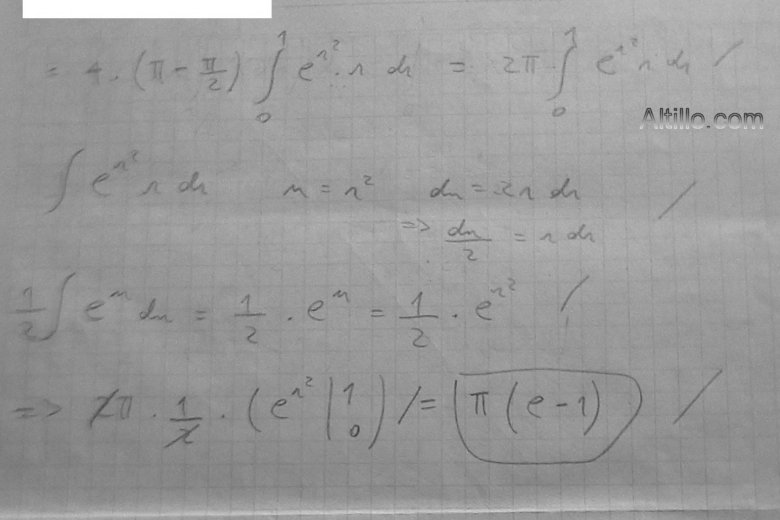 = 4 · (π - π/2) ∫₀¹ e^(r²) · r dr = 2π · ∫₀¹ e^(r²) r dr /
Altillo.com
∫ e^(r²) r dr u = r² du = 2r dr /
=> du/2 = r dr
1/2 ∫ e^u du = 1/2 · e^u = 1/2 · e^(r²) /
=> 2π · 1/2 · (e^(r²) |₀¹) / = π (e - 1) /